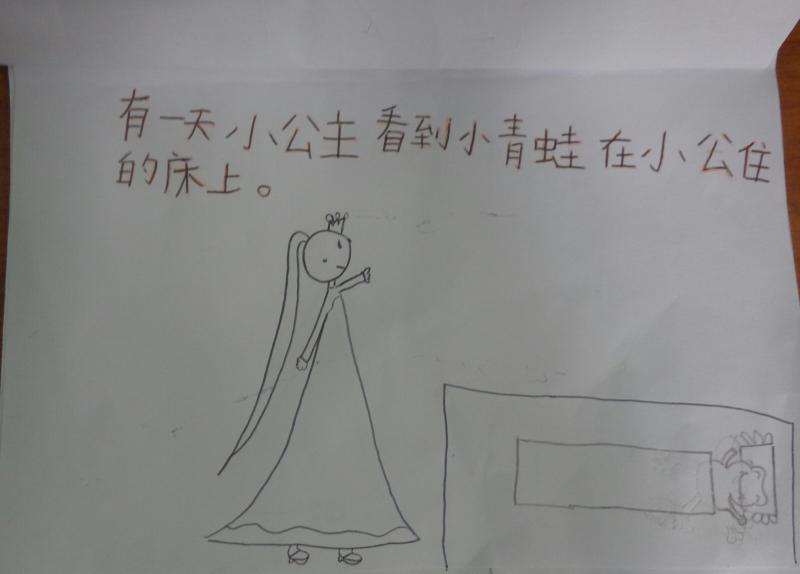 有一天小公主看到小青蛙在小公住
的床上。